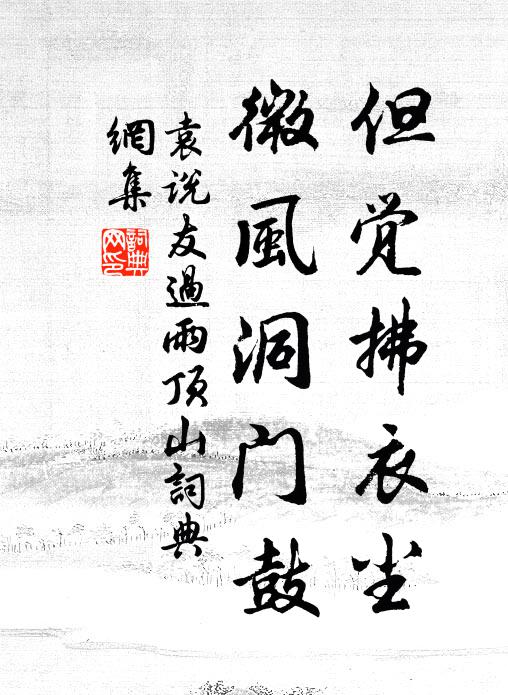 但觉拂衣尘
微風洞门鼓
袁说友過雨頂山詞典
網集
詞典
网印